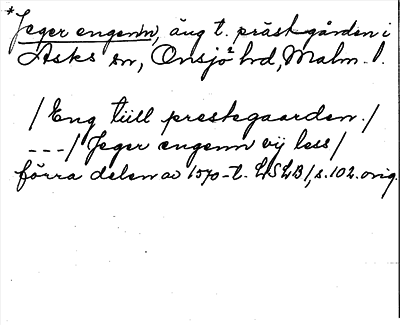 *Jeger engenn, äng t. prästgården i
Asks sn, Onsjö hd, Malm. l.
/Eng tiill prestegaarden./
---/Jeger engenn vij less/
förra delen av 1570-t. LSLB/, s. 102. orig.